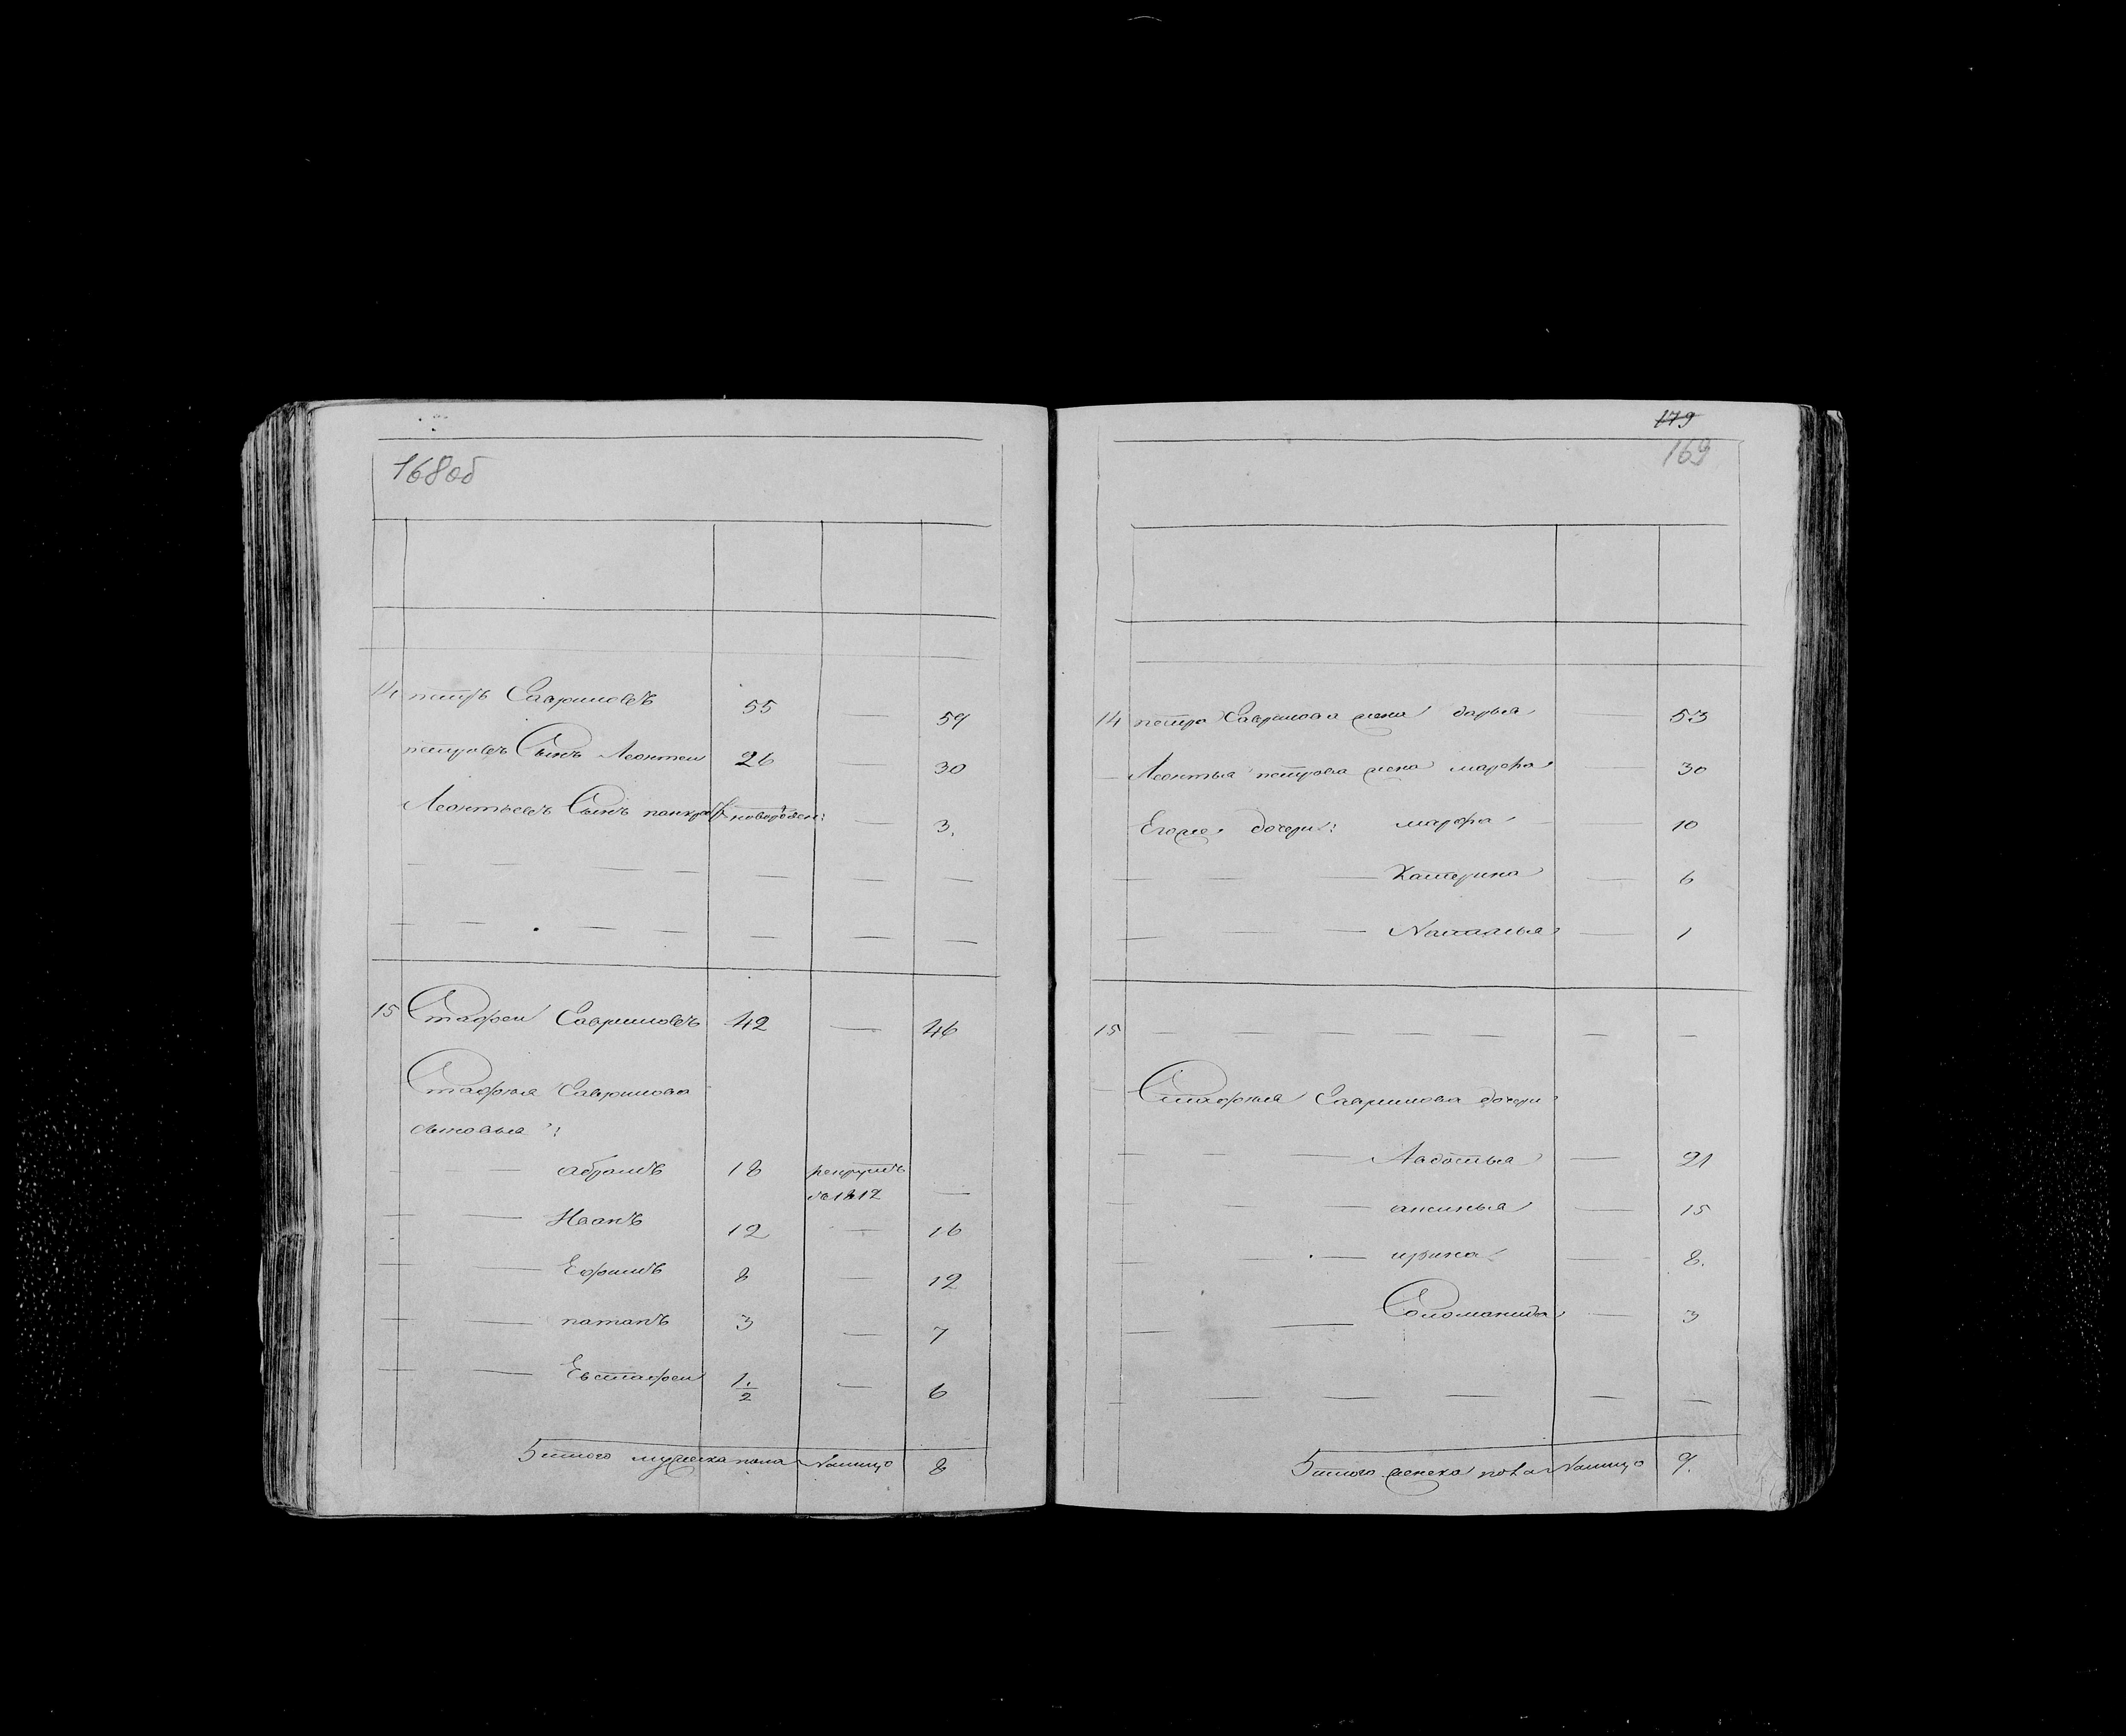 168об
14 петръ Савриновъ 55 — 59
петровъ Сынъ Леонтеи 26 — 30
Леонтьевъ Сынъ панкра новорожден: — 3.
15 Стафеи Савриновъ 42 — 46
Стафея Савринова
сыновья:
абрамъ 18 рекрутъ
в 1812 —
Иванъ 12 — 16
Ефимъ 8 — 12
патапъ 3 — 7
Евстафеи 1/2 — 6
итого мужеска пола налицо 8
179
169
14 петра Савринова жена дарья — 53
Леонтья петрова жена марфа — 30
Егоже дочери: марфа — 10
Катерина — 6
Наталья — 1
15 — — — — — — — —
Стафея Савринова дочери
Авдотья — 21
аксинья — 15
ирина — 8.
Соломанида — 3
итого женска пола налицо 9.